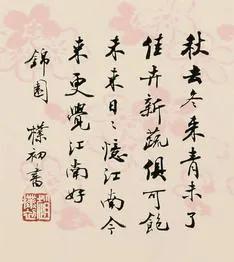 秋去冬来青未了
佳卉新蔬俱可飽
未来日〻憶江南今
来更覺江南好
錦園 樸初書